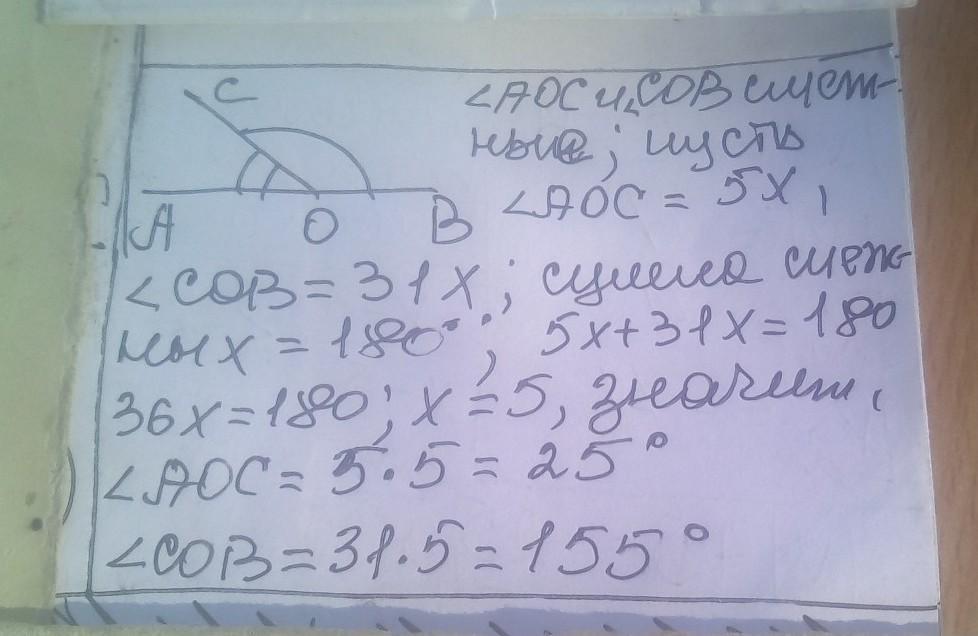 C
A O B
∠AOC и ∠COB смеж-
ные; пусть
∠AOC = 5x,
∠COB = 31x; сумма смеж-
ных = 180°; 5x+31x=180
36x=180; x=5, значит,
∠AOC = 5·5 = 25°
∠COB = 31·5 = 155°